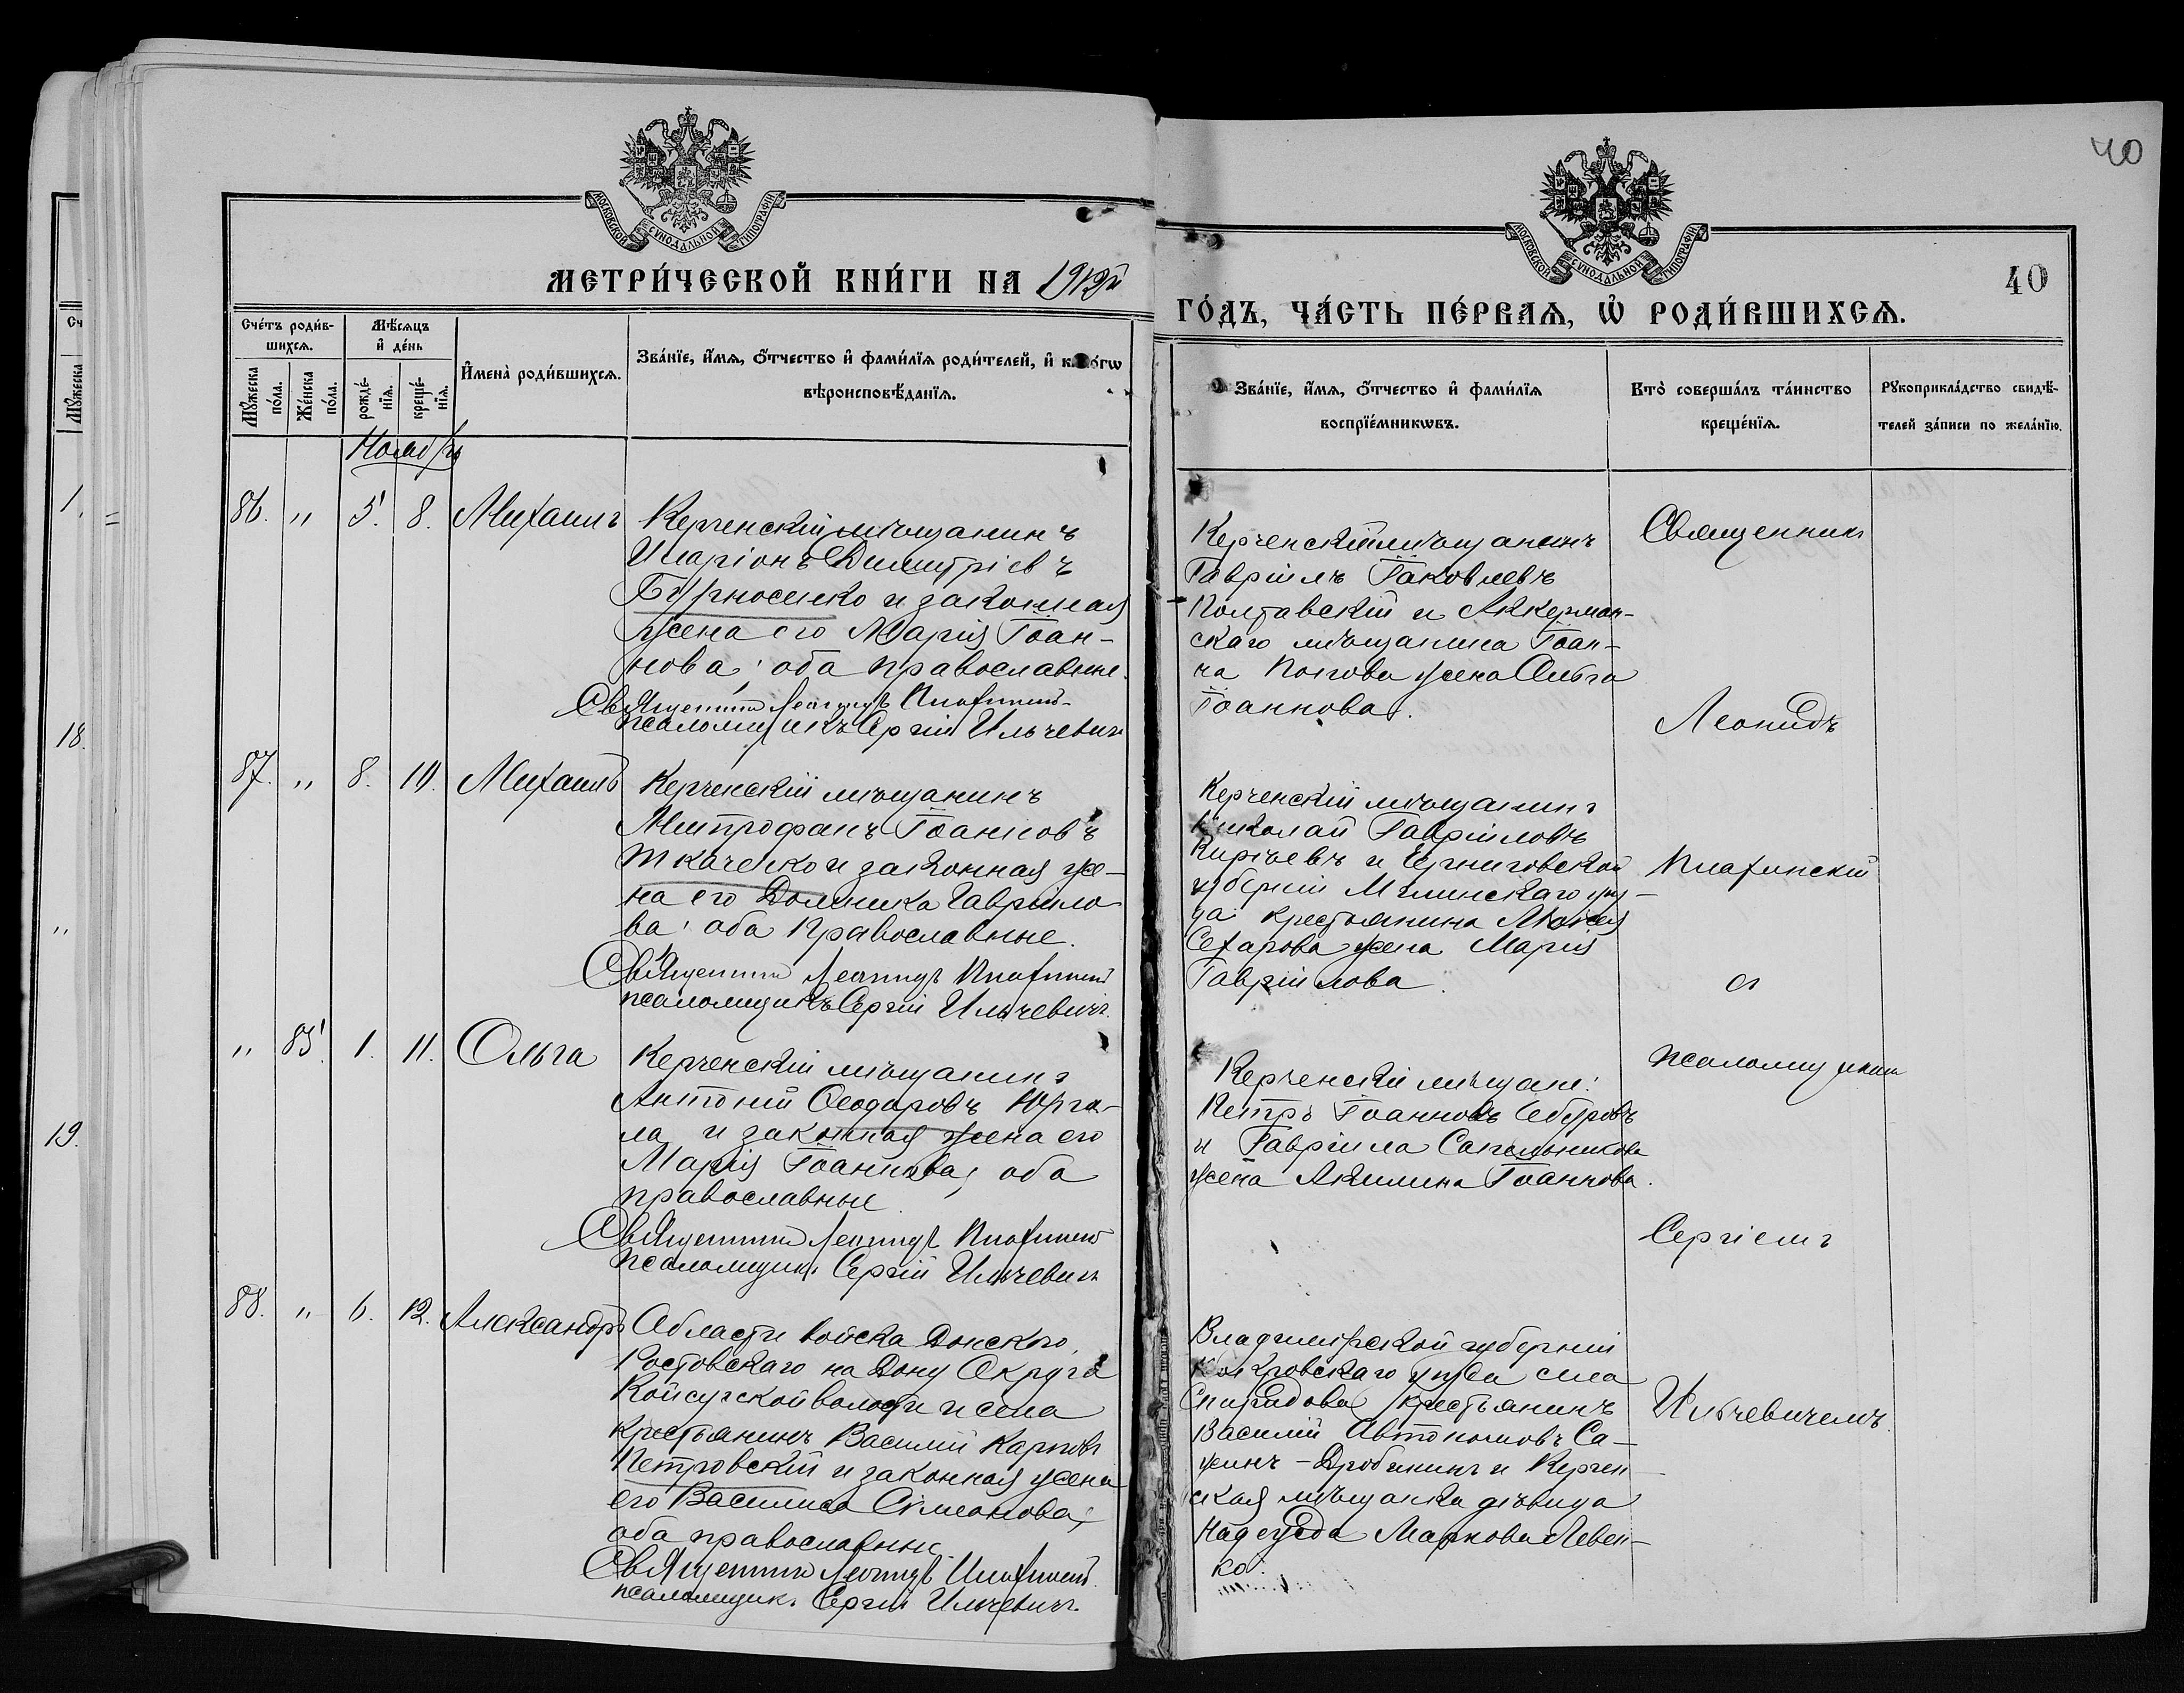 40
МОСКОВСКОЙ СѴНОДАЛЬНОЙ ТИПОГРАФІИ
МОСКОВСКОЙ СѴНОДАЛЬНОЙ ТИПОГРАФІИ
МЕТРИ́ЧЕСКОЙ КНИ́ГИ НА 1912й
ГО́ДЪ, ЧА́СТЬ ПЕ́РВАѦ, Ѡ РОДИ́ВШИХСѦ.
40
Сче́тъ роди́в-
шихсѧ.
Мꙋ́жеска
по́ла.
Же́нска
по́ла.
Мѣ́сѧцъ
и҆ де́нь
рожде́-
нїѧ.
креще́-
нїѧ.
И҆мена̀ роди́вшихсѧ.
Зва́нїе, и҆́мѧ, ѻ҆́тчество и҆ фами́лїѧ роди́телей, и҆ ко́гѡ
вѣроисповѣ́данїѧ.
Зва́нїе, и҆́мѧ, ѻ҆́тчество и҆ фами́лїѧ
воспрїе́мникѡвъ.
Кто̀ соверша́лъ та́инство
креще́нїѧ.
Рꙋкоприкла́дство свидѣ́-
телей за́писи по жела́нїю.
Ноябрь
86. " 5. 8. Михаилъ
Керченскій мѣщанинъ
Иларіонъ Димитріевъ
Бурносенко и законная
жена его Марія Іоан-
нова; оба православные.
Священникъ Леонидъ
псаломщикъ Сергій Ильчевичъ
Керченскій мѣщанинъ
Гавріилъ Іаковлевъ
Полтавскій и Аккерман-
скаго мѣщанина Іоан-
на Попова жена Ольга
Іоаннова.
Священникъ
Леонидъ
87. " 8. 10. Михаилъ
Керченскій мѣщанинъ
Митрофанъ Іоанновъ
Ткаченко и законная же-
на его Домника Гавріило-
ва; оба Православные.
Священникъ Леонидъ
псаломщикъ Сергій Ильчевичъ.
Керченскій мѣщанинъ
Николай Гавріиловъ
Кирѣевъ и Черниговской
губерніи Мглинскаго уѣз-
да крестьянина
жена Марія
Гавріилова.
съ
" 85. 1. 11. Ольга
Керченскій мѣщанинъ
Антоній Ѳеодоровъ Юрга-
ла и законная жена его
Марія Іоаннова; оба
православные
Священникъ Леонидъ
псаломщикъ Сергій Ильчевичъ
Керченскій мѣщане:
Петръ Іоанновъ
и Гавріила Сапельникова
жена Акилина Іоаннова.
псаломщикомъ
Сергіемъ
88. " 6. 12. Александръ
Области войска Донского,
Ростовскаго на Дону Округа
Койсугской волости и села
крестьянинъ Василій Карповъ
Петровскій и законная жена
его Василиса Симеонова;
оба православные
Священникъ Леонидъ
псаломщикъ Сергій Ильчевичъ.
Владимірской губерніи
Покровскаго уѣзда села
Спиридова крестьянинъ
Василій Автономовъ Са-
жинъ-Дробинин и Керчен-
ская мѣщанка дѣвица
Надежда Маркова Левен-
ко.
Ильчевичемъ.
1.
18.
"
19.